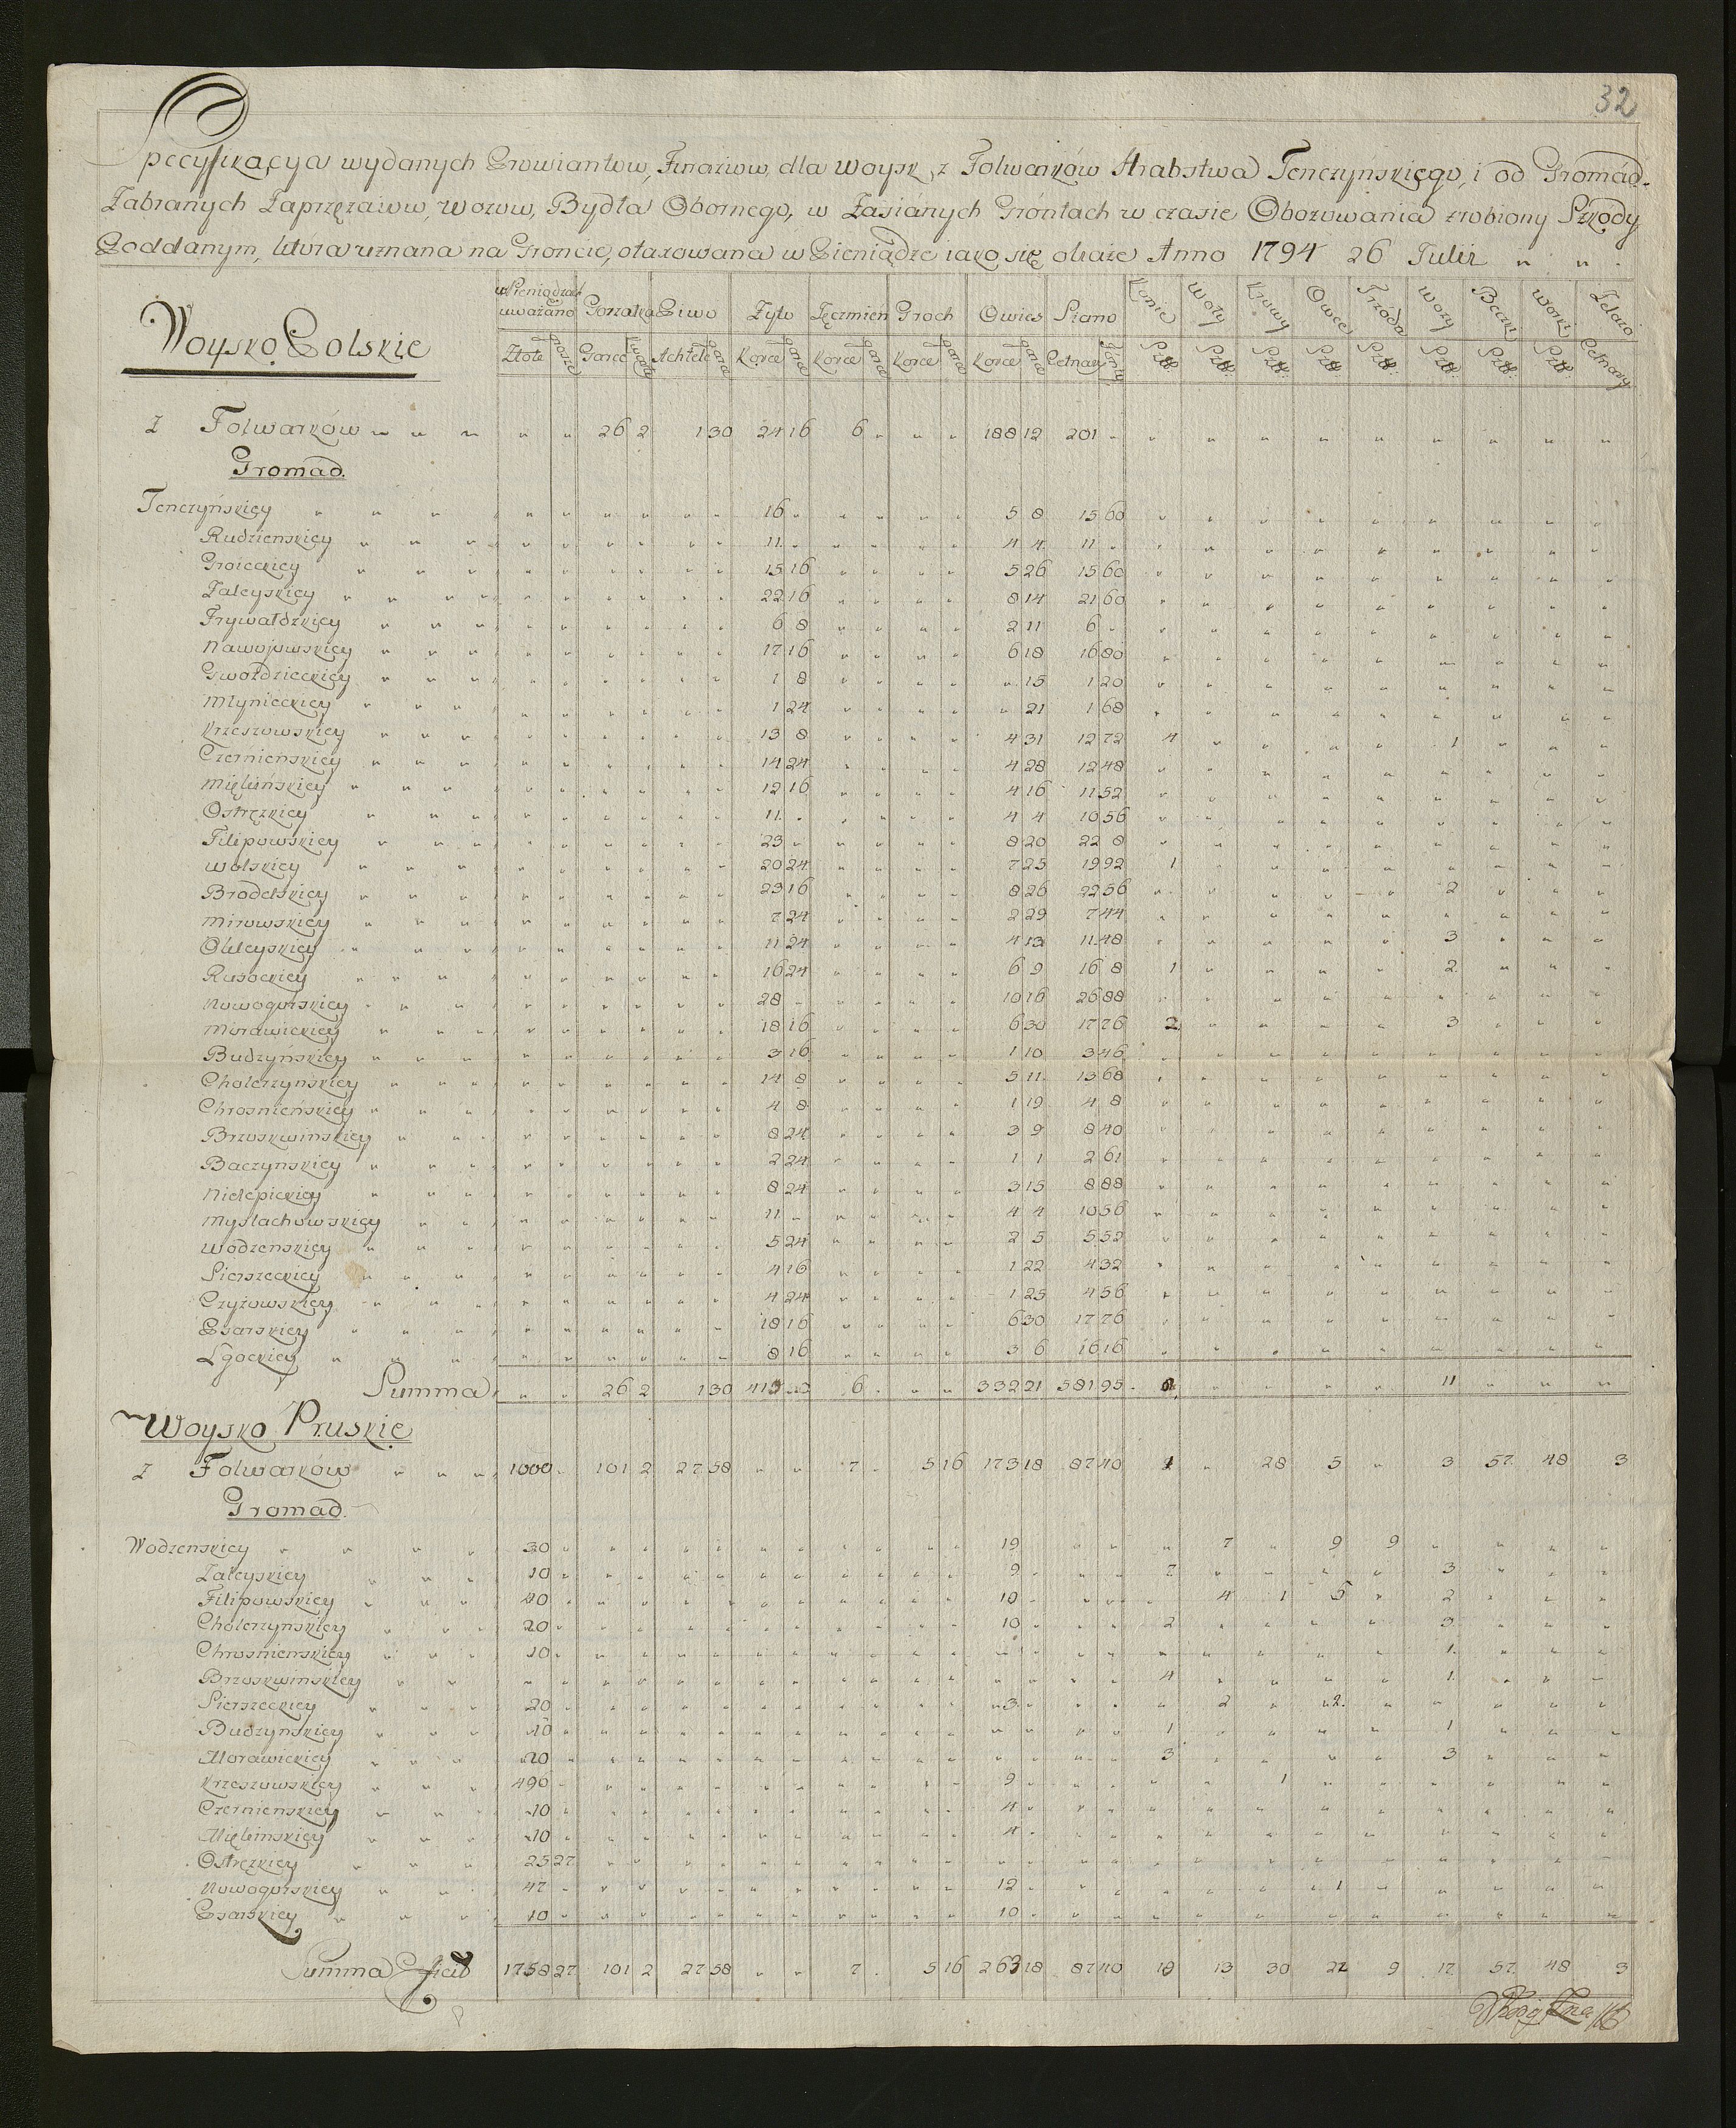 32
Specyfikacya wydanych Prowiantow, Furażow, dla Woysk, z Folwarków Hrabstwa Tenczynskiego, i od Gromad.
Zabranych Zaprzęzaiow, Wozow, Bydła Obornego, w Zasianych Gróntach w czasie Obozowania zrobiony Szkody
Poddanym, która uznana na Gróncie, otaxowana w Pieniądze iako się okaże Anno 1794 26 Julii " "
Woysko Polskie
w Pieniądzach uważano Gorzałka Piwo Żyto Jęczmień Groch Owies Siano Konie Woły Krowy Owce Źróda Wozy Beczki Worki Żelazo
Złote grosze Garce kwarty Achtele garce Korce garce Korce garce Korce garce Korce garce Cetnary funty Sztk: Sztk: Sztk: Sztk: Sztk: Sztk: Sztk: Sztk: Cetnary
Z Folwarków " " " " " 26 2 1 30 24 16 6 " " " 188 12 201 " " " " " " " " " "
Gromad.
Tenczyńskiey 16 " 5 8 15 60
Rudzienskiey 11 " 4 4 11 "
Groieckiey 15 16 5 26 15 60
Zaleyskiey 22 16 8 14 21 60
Frywałdzkiey 6 8 2 11 6 "
Nawojowskiey 17 16 6 18 16 80
Gwoździeckiey 1 8 " 15 1 20
Młynieckiey 1 24 " 21 1 68
Krzeszowskiey 13 8 4 31 12 72 4 1
Czernienskiey 14 24 4 28 12 48
Miękińskiey 12 16 4 16 11 52
Ostręzkiey 11 " 4 4 10 56
Filipowskiey 23 " 8 20 22 8
Wolskiey 20 24 7 25 19 92 1
Brodelskiey 23 16 8 26 22 56 2
Mirowskiey 7 24 2 29 7 44
Okleyskiey 11 24 4 13 11 48 3
Rusockiey 16 24 6 9 16 8 1 2
Nowogorskiey 28 " 10 16 26 88
Morawickiey 18 16 6 30 17 76 2 3
Budzyńskiey 3 16 1 10 3 46
Cholerzynskiey 14 8 5 11 13 68
Chrosnieńskiey 4 8 1 19 4 8
Brzoskwinskiey 8 24 3 9 8 40
Baczynskiey 2 24 1 1 2 61
Nielepickiey 8 24 3 15 8 88
Myslachowskiey 11 " 4 4 10 56
Wodzenskiey 5 24 2 5 5 52
Sierszeckiey 4 16 1 22 4 32
Czyżowskiey 4 24 1 25 4 56
Psarskiey 18 16 6 30 17 76
Lgockiey 8 16 3 6 16 16
Summa " " 26 2 1 30 6 " " " 332 21 581 95 8 " " " " 11 " " "
Woysko Pruskie
Z Folwarków " " " 1000 " 101 2 27 58 " " 7 " 5 16 173 18 87 40 1 " 28 5 " 3 57 48 3
Gromad.
Wodzenskiey 30 " 19 7 9 9
Zaleyskiey 10 " 9 7 3
Filipowskiey 40 " 10 4 1 5 2
Cholerzynskiey 20 " 10 2 3
Chrosnienskiey 10 " 1
Brzoskwinskiey " " 4 1
Sierszeckiey 20 " 3 2 2
Budzynskiey 10 " 1 1
Morawickiey 20 " 3 3
Krzeszowskiey 496 " 9 1
Czernienskiey 10 " 4
Miękinskiey 10 " 4
Ostręzkiey 25 27
Nowogorskiey 47 " 12 1
Psarskiey 10 " 10
Summa Efficit 1758 27 101 2 27 58 " " 7 " 5 16 263 18 87 40 18 13 30 22 9 17 57 48 3